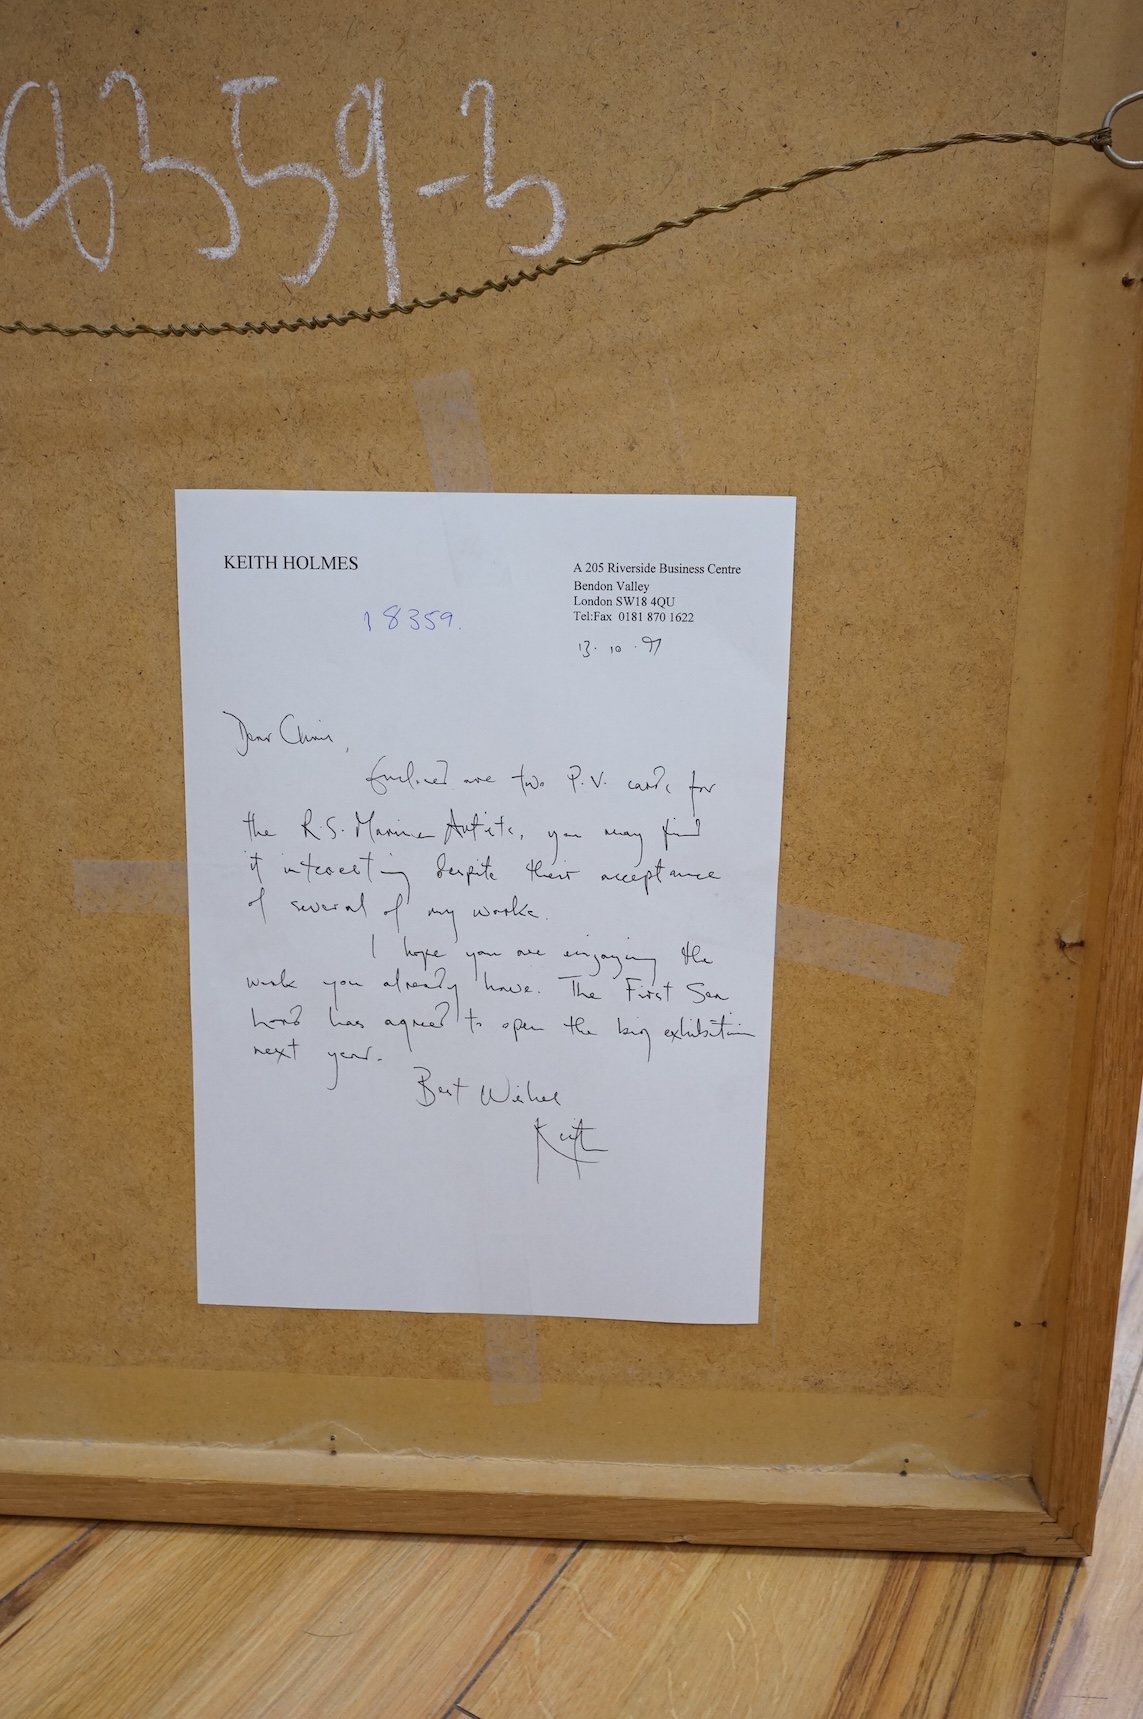 8359-3
KEITH HOLMES
A 205 Riverside Business Centre
Bendon Valley
London SW18 4QU
Tel:Fax 0181 870 1622
18359.
13.10.97
Dear
Enclosed are two P.V. cards for
the R.S. Marine Artists, you may find
it interesting despite their acceptance
of several of my works.
I hope you are enjoying the
work you already have. The First Sea
Lord has agreed to open the big exhibition
next year.
Best Wishes
Keith